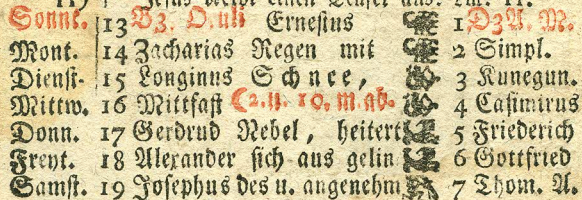 Sonnt. 13 B3. Oculi Ernestus 1 D3A. M.
Mont. 14 Zacharias Regen mit 2 Simpl.
Dienst. 15 Longinus Schnee, 3 Kunegun.
Mittw. 16 Mittfast ☾2. u. 10. m. ab. 4 Casimirus
Donn. 17 Gerdrud Nebel, heitert 5 Friederich
Freyt. 18 Alexander sich aus gelin 6 Gottfried
Samst. 19 Josephus des u. angenehm 7 Thom. A.